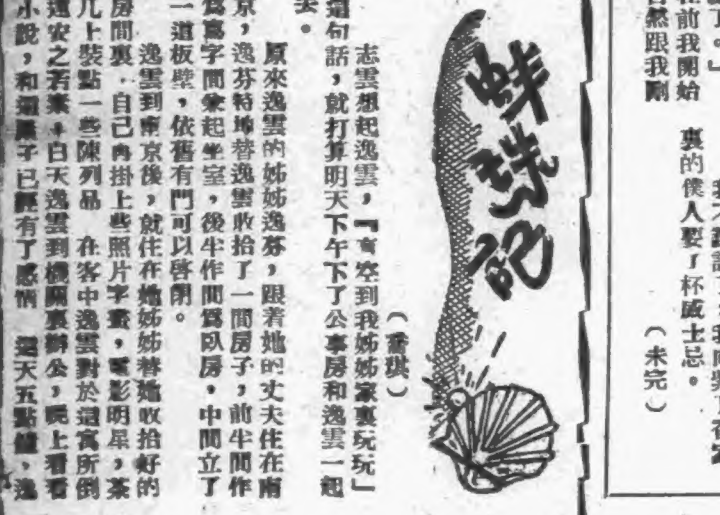 了。」
在前我開始
自然跟我剛
裏的僕人要了杯威士忌。
（未完）
蚌珠記
（喬琪）
志雲想起逸雲，『有空到我姊姊家裏玩玩』
這句話，就打算明天下午下了公事房和逸雲一起
去。
原來逸雲的姊姊逸芬，跟着她的丈夫住在南
京，逸芬特地替逸雲收拾了一間房子，前半間作
爲寫字間兼起坐室，後半作間爲臥房，中間立了
一道板壁，依舊有門可以啓閉。
逸雲到南京後，就住在她姊姊替她收拾好的
房間裏，自己再掛上些照片字畫，電影明星，茶
几上裝點一些陳列品 在客中逸雲對於這寓所倒
還安之若素，白天逸雲到機關裏辦公，晚上看看
小說，和這屋子已經有了感情 這天五點鐘，逸